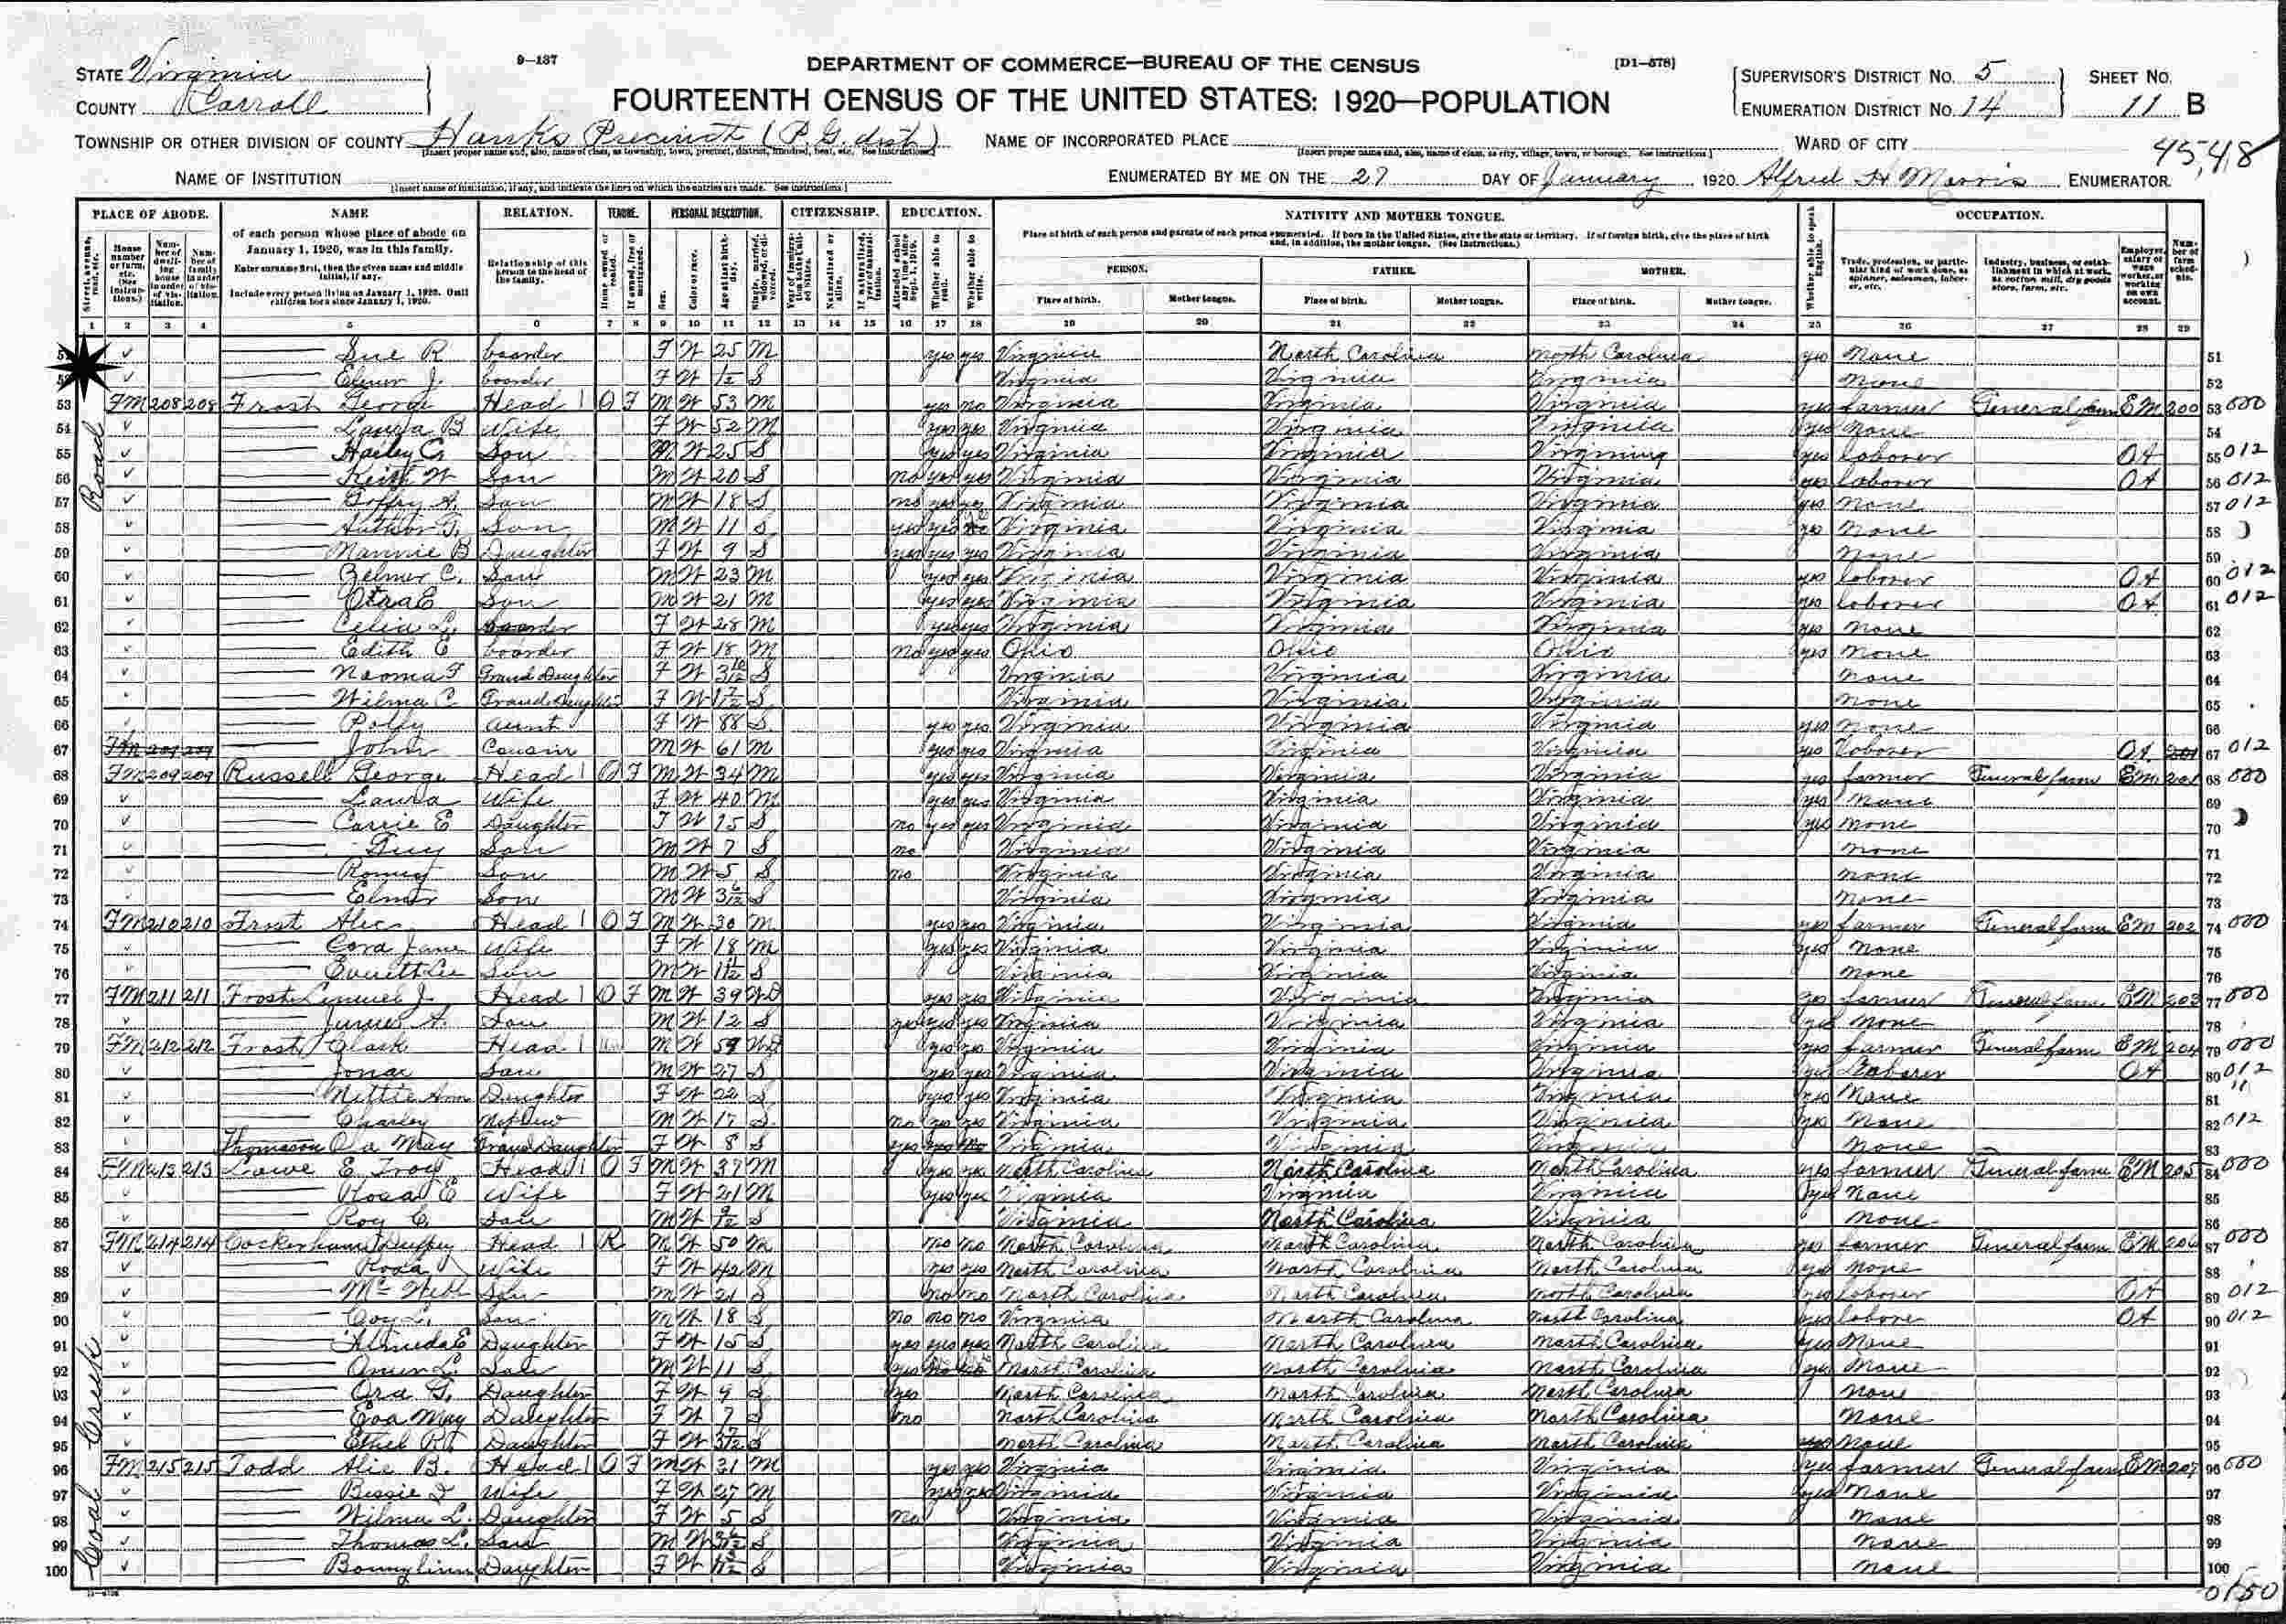 9—137
DEPARTMENT OF COMMERCE—BUREAU OF THE CENSUS
[D1—578]
STATE Virginia
COUNTY Carroll
FOURTEENTH CENSUS OF THE UNITED STATES: 1920—POPULATION
SUPERVISOR'S DISTRICT NO. 5
ENUMERATION DISTRICT NO. 14
SHEET NO. 11 B
TOWNSHIP OR OTHER DIVISION OF COUNTY Hanks Precinct (P. G. dist)
NAME OF INCORPORATED PLACE
WARD OF CITY
NAME OF INSTITUTION
ENUMERATED BY ME ON THE 27 DAY OF January 1920. Alfred H Morris ENUMERATOR.
PLACE OF ABODE. NAME RELATION. TENURE. PERSONAL DESCRIPTION. CITIZENSHIP. EDUCATION. NATIVITY AND MOTHER TONGUE. OCCUPATION.
of each person whose place of abode on January 1, 1920, was in this family.
Enter surname first, then the given name and middle initial, if any.
Include every person living on January 1, 1920. Omit children born since January 1, 1920.
Relationship of this person to the head of the family.
PERSON. FATHER. MOTHER.
Place of birth. Mother tongue. Place of birth. Mother tongue. Place of birth. Mother tongue.
1 2 3 4 5 6 7 8 9 10 11 12 13 14 15 16 17 18 19 20 21 22 23 24 25 26 27 28 29
Sue R boarder F W 25 M yes yes Virginia North Carolina North Carolina yes None 51
boarder F W S Virginia Virginia Virginia None 52
53 FM 208 208 Frost George Head 1 O F M W 53 M yes no Virginia Virginia Virginia yes farmer General farm EM 200 53 000
54 Laura B Wife F W 52 M yes yes Virginia Virginia Virginia yes None 54
55 Son M W 25 S yes yes Virginia Virginia yes laborer OA 55 012
56 Keith W Son M W 20 S no yes yes Virginia Virginia Virginia yes laborer OA 56 012
57 Son M W 18 S no yes yes Virginia Virginia Virginia yes None 57 012
58 Son M W 11 S yes yes Virginia Virginia Virginia yes None 58
59 Mannie B Daughter F W 9 S yes yes yes Virginia Virginia Virginia None 59
60 Son M W 23 M yes yes Virginia Virginia Virginia yes laborer OA 60 012
61 Son M W 21 M yes yes Virginia Virginia Virginia yes laborer OA 61 012
62 Celia L. boarder F W 28 M yes yes Virginia Virginia Virginia yes None 62
63 Edith E boarder F W 18 M no yes yes Ohio Ohio Ohio yes None 63
64 Naoma F Grand Daughter F W 3 10/12 S Virginia Virginia Virginia None 64
65 Wilma C Grand Daughter F W S Virginia Virginia Virginia None 65
66 Polly Aunt F W 88 S yes yes Virginia Virginia Virginia yes None 66
67 John Cousin M W 61 M yes yes Virginia Virginia Virginia yes laborer OA 67 012
68 FM 209 209 Russell George Head 1 O F M W 34 M yes yes Virginia Virginia Virginia yes farmer General farm Em 201 68 000
69 Laura Wife F W 40 M yes yes Virginia Virginia Virginia yes None 69
70 Carrie E Daughter F W 15 S no yes yes Virginia Virginia Virginia yes None 70
71 Guy Son M W 7 S no Virginia Virginia Virginia None 71
72 Son M W 5 S no Virginia Virginia Virginia None 72
73 Elmer Son M W 3 6/12 S Virginia Virginia Virginia None 73
74 FM 210 210 Frost Alec Head 1 O F M W 30 M yes yes Virginia Virginia Virginia yes farmer General farm EM 202 74 000
75 Cora Jane Wife F W 18 M yes yes Virginia Virginia Virginia yes None 75
76 Everett Lee Son M W S Virginia Virginia Virginia None 76
77 FM 211 211 Frost Lemuel J. Head 1 O F M W 39 WD yes yes Virginia Virginia Virginia yes farmer General farm EM 203 77 000
78 A. Son M W 12 S yes yes yes Virginia Virginia Virginia yes None 78
79 FM 212 212 Frost Clark Head 1 M W 59 WD yes yes Virginia Virginia Virginia yes farmer General farm EM 204 79 000
80 Son M W 27 S yes yes Virginia Virginia Virginia yes Laborer OA 80 012
81 Nettie Ann Daughter F W 22 S yes yes Virginia Virginia Virginia yes None 81
82 Charley Nephew M W 17 S no yes yes Virginia Virginia Virginia yes None 82 012
83 Thomason Ola May Grand Daughter F W 8 S yes yes no Virginia Virginia Virginia None 83
84 FM 213 213 Lowe E. Troy Head 1 O F M W 37 M yes yes North Carolina North Carolina North Carolina yes farmer General farm EM 205 84 000
85 Rosa E Wife F W 21 M yes yes Virginia Virginia Virginia yes None 85
86 Roy C. Son M W 9/12 S Virginia North Carolina Virginia None 86
87 FM 214 214 Cockerham Head 1 R M W 50 M no no North Carolina North Carolina North Carolina yes farmer General farm EM 206 87 000
88 Rosa Wife F W 42 M yes yes North Carolina North Carolina North Carolina yes None 88
89 Son M W 21 S no no North Carolina North Carolina North Carolina yes laborer OA 89 012
90 Coy L. Son M W 18 S no no no Virginia North Carolina North Carolina yes labore OA 90 012
91 Almeda E Daughter F W 15 S yes yes yes North Carolina North Carolina North Carolina yes None 91
92 Son M W 11 S yes North Carolina North Carolina North Carolina yes None 92
93 Ora Daughter F W 9 S yes North Carolina North Carolina North Carolina None 93
94 Eva May Daughter F W 7 S no North Carolina North Carolina North Carolina None 94
95 Ethel Daughter F W 3 7/12 S North Carolina North Carolina North Carolina None 95
96 FM 215 215 Todd Alie B. Head 1 O F M W 31 M yes yes Virginia Virginia Virginia yes farmer General farm EM 207 96 000
97 Bessie Wife F W 27 M yes yes Virginia Virginia Virginia yes None 97
98 Wilma L. Daughter F W 5 S no Virginia Virginia Virginia None 98
99 Thomas L. Son M W 3 6/12 S Virginia Virginia Virginia None 99
100 Daughter F W S Virginia Virginia Virginia None 100
Road
Coal Creek